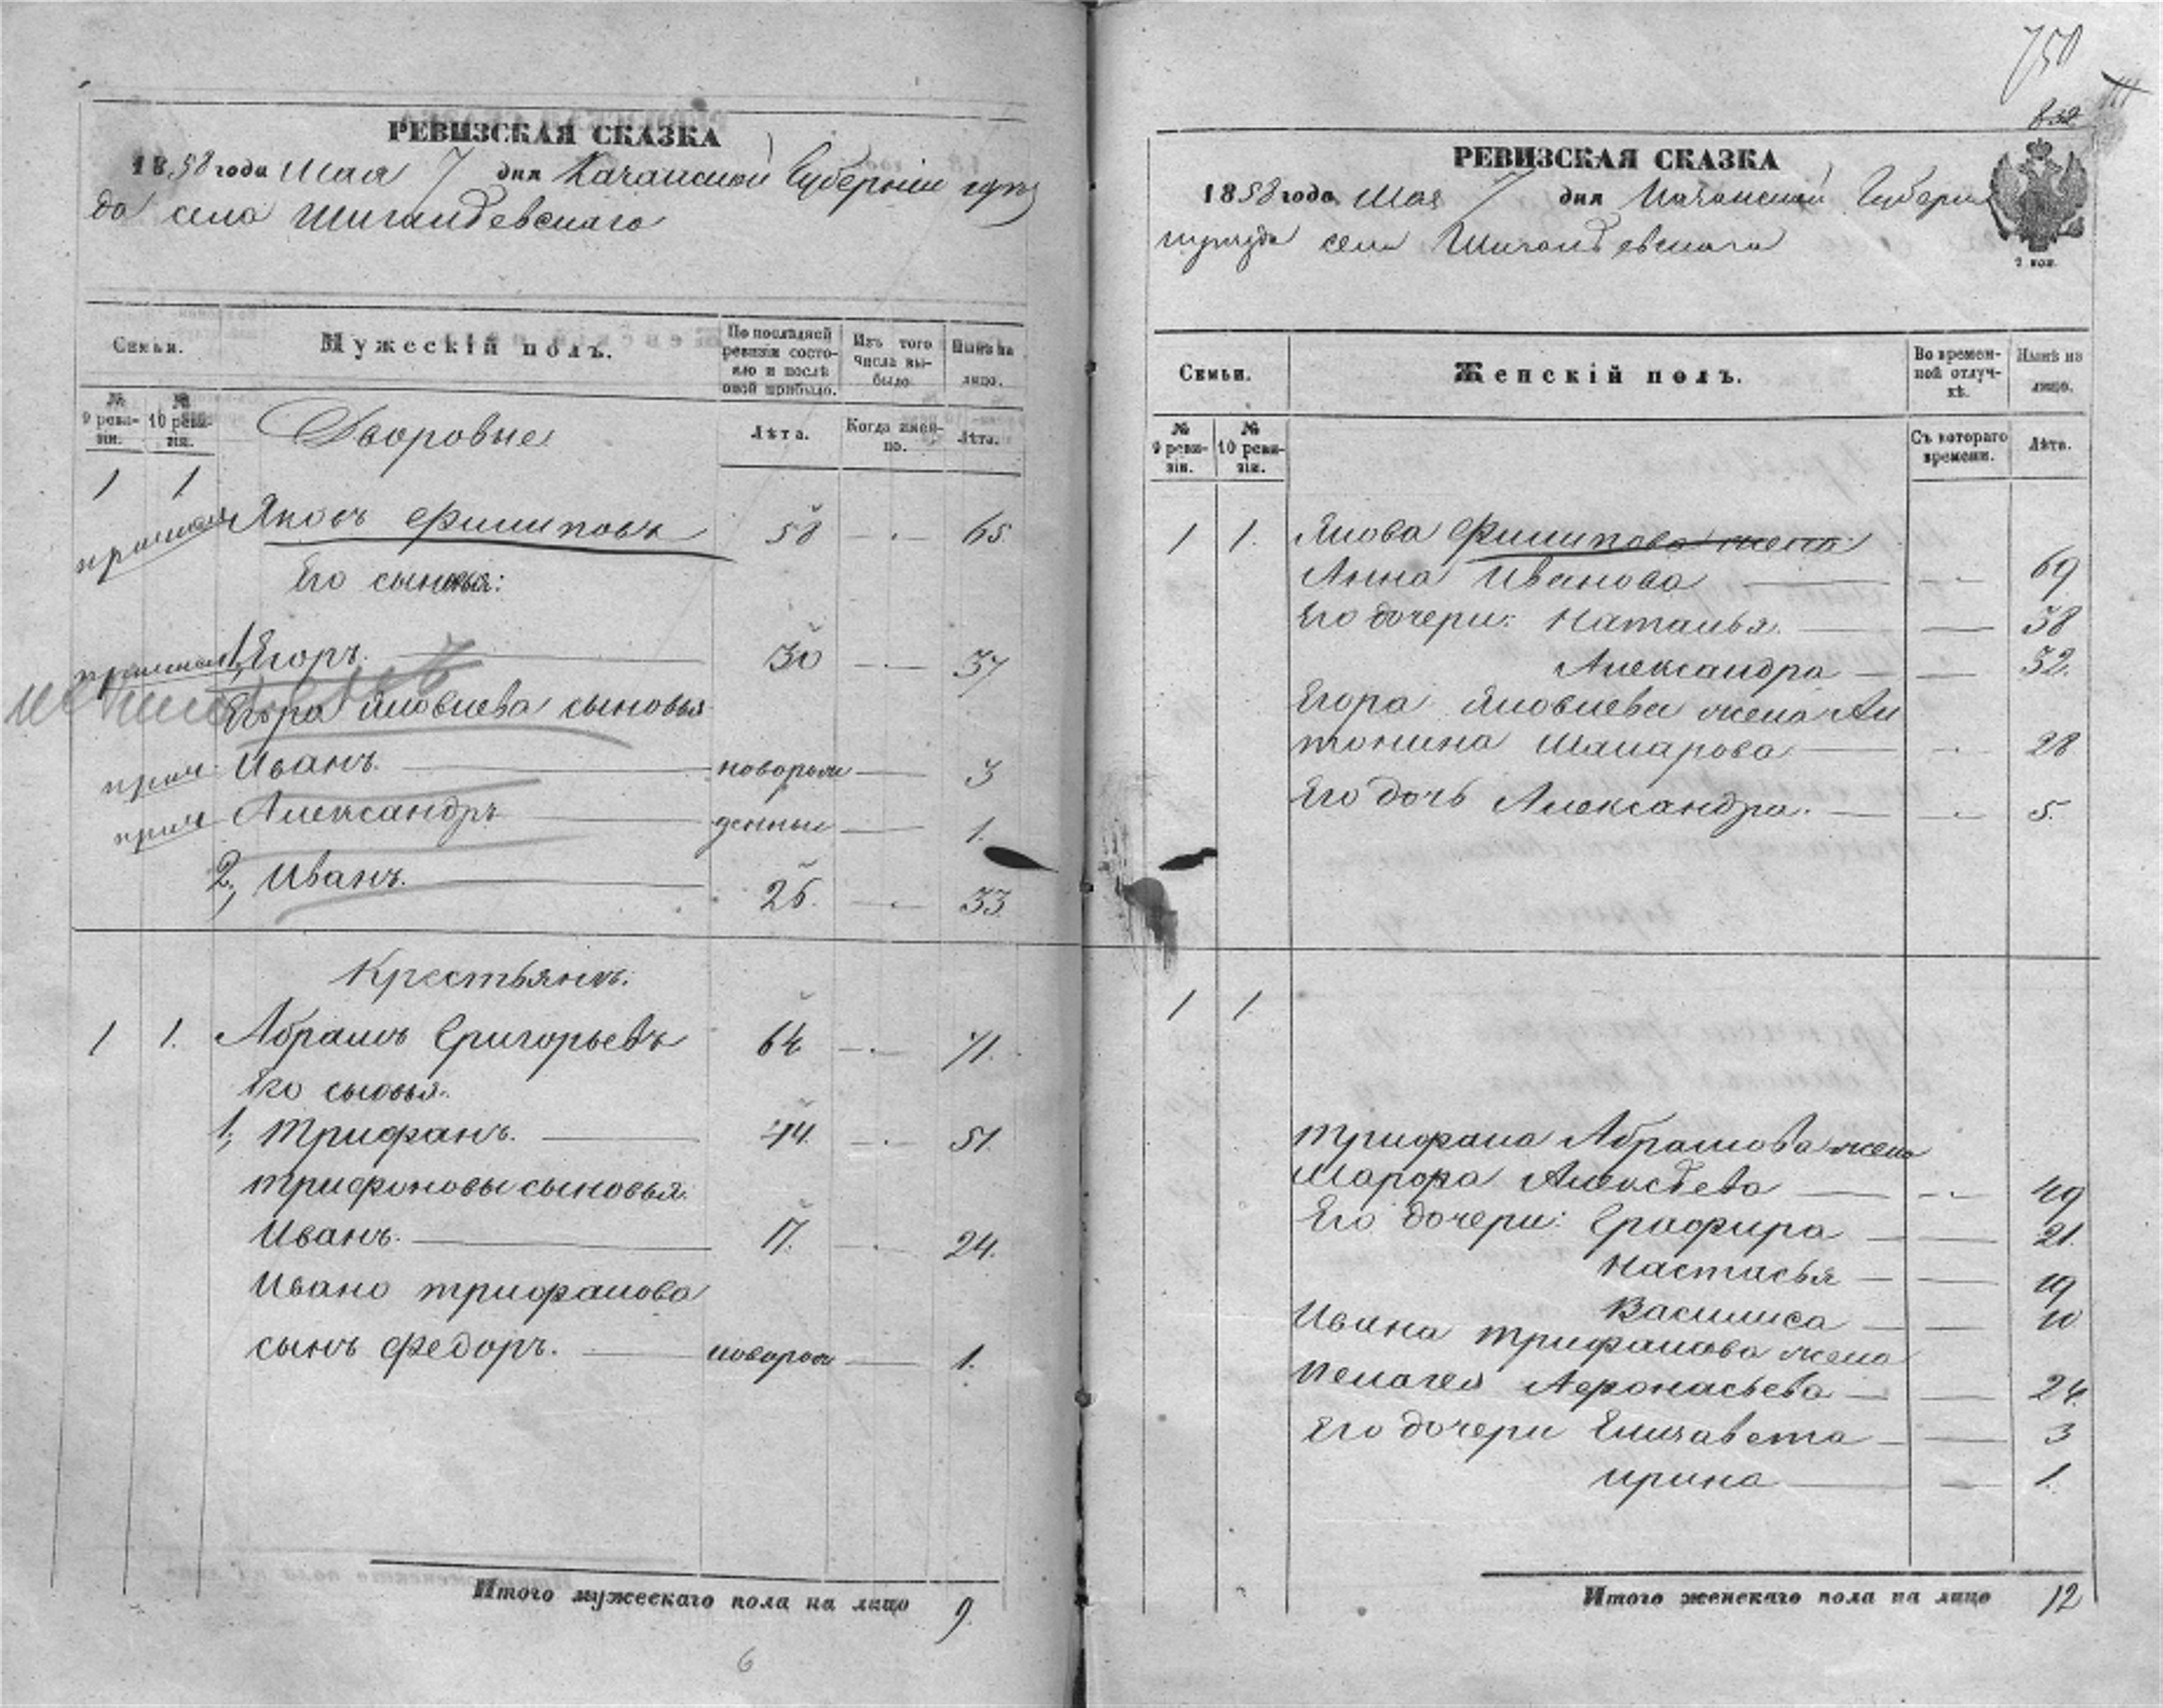 РЕВИЗСКАЯ СКАЗКА
1858 года Мая 7 дня Казанской Губерніи
села
Семьи.
Мужескій полъ.
По последней ревизіи состояло и после оной прибыло.
Изъ того числа выбыло.
Ныне на лицо.
№ 9 ревизіи.
№ 10 ревизіи.
Дворовые
Лѣта.
Когда именно.
Лѣта.
1 1
Яковъ Филиповъ 58 65
Его сыновья:
1, Егоръ. 30 37
Егора Яковлева сыновья
Иванъ. новорож 3
Александръ денные 1.
2, Иванъ. 26. 33
Крестьяне.
1 1. Абрамъ Григорьевъ 64 71.
Его сыовья.
1, Трифанъ. 44. 51.
Трифоновы сыновья.
Иванъ. 17. 24.
Ивана Трифанова
сынъ Федоръ. новорож 1.
Итого мужескаго пола на лицо 9.
6
750
РЕВИЗСКАЯ СКАЗКА
1858 года Мая 7 дня Казанской Губерніи
села
2 коп.
Семьи.
Женскій полъ.
Во временной отлучкѣ.
Нынѣ на лицо.
№ 9 ревизіи.
№ 10 ревизіи.
Съ котораго времени.
Лѣта.
1 1. Якова Филипова жена
Анна Иванова 69
Его дочери: Наталья. 38
Александра 32.
Егора Яковлева жена Ан
тонина Макарова 28
Его дочь Александра. 5.
1 1.
Трифана Абрамова жена
Марфа Алексѣева 49
Его дочери: Графира 21.
Настасья 19
Василиса 10
Ивана Трифанова жена
Пелагея Афонасьева 24.
Его дочери Елизавета 3
Ирина 1.
Итого женскаго пола на лицо 12